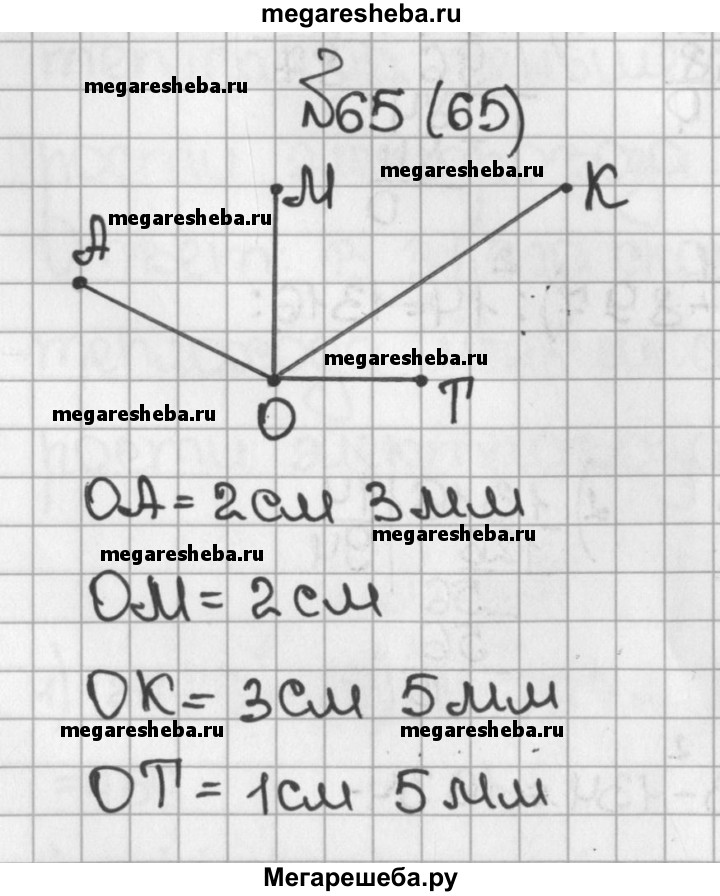 megaresheba.ru
megaresheba.ru
№65 (65)
megaresheba.ru
М
К
megaresheba.ru
А
megaresheba.ru
megaresheba.ru
О
Т
ОА = 2 см 3 мм
megaresheba.ru
megaresheba.ru
ОМ = 2 см
ОК = 3 см 5 мм
megaresheba.ru
megaresheba.ru
ОТ = 1 см 5 мм
Мегарешеба.ру